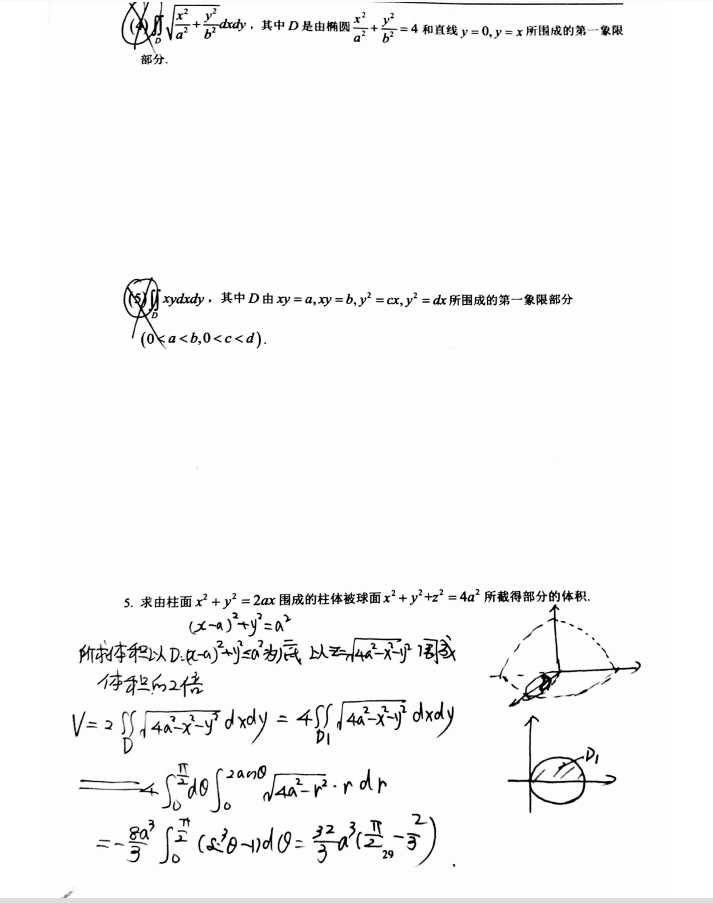 (4) ∬_D √(x²/a² + y²/b²) dxdy，其中 D 是由椭圆 x²/a² + y²/b² = 4 和直线 y = 0, y = x 所围成的第一象限
部分.
(5) ∬_D xydxdy，其中 D 由 xy = a, xy = b, y² = cx, y² = dx 所围成的第一象限部分
(0 < a < b, 0 < c < d).
5. 求由柱面 x² + y² = 2ax 围成的柱体被球面 x² + y² + z² = 4a² 所截得部分的体积.
(x-a)² + y² = a²
所求体积以 D:(x-a)²+y²≤a² 为底 以 z=√(4a²-x²-y²)
体积的2倍
V = 2 ∬_D √(4a²-x²-y²) dxdy = 4 ∬_D₁ √(4a²-x²-y²) dxdy
D₁
= 4 ∫₀^(π/2) dθ ∫₀^(2acosθ) √(4a²-r²) · r dr
= -8a³/3 ∫₀^(π/2) (s³θ-1)dθ = 32/3 a³(π/2 - 2/3)
29